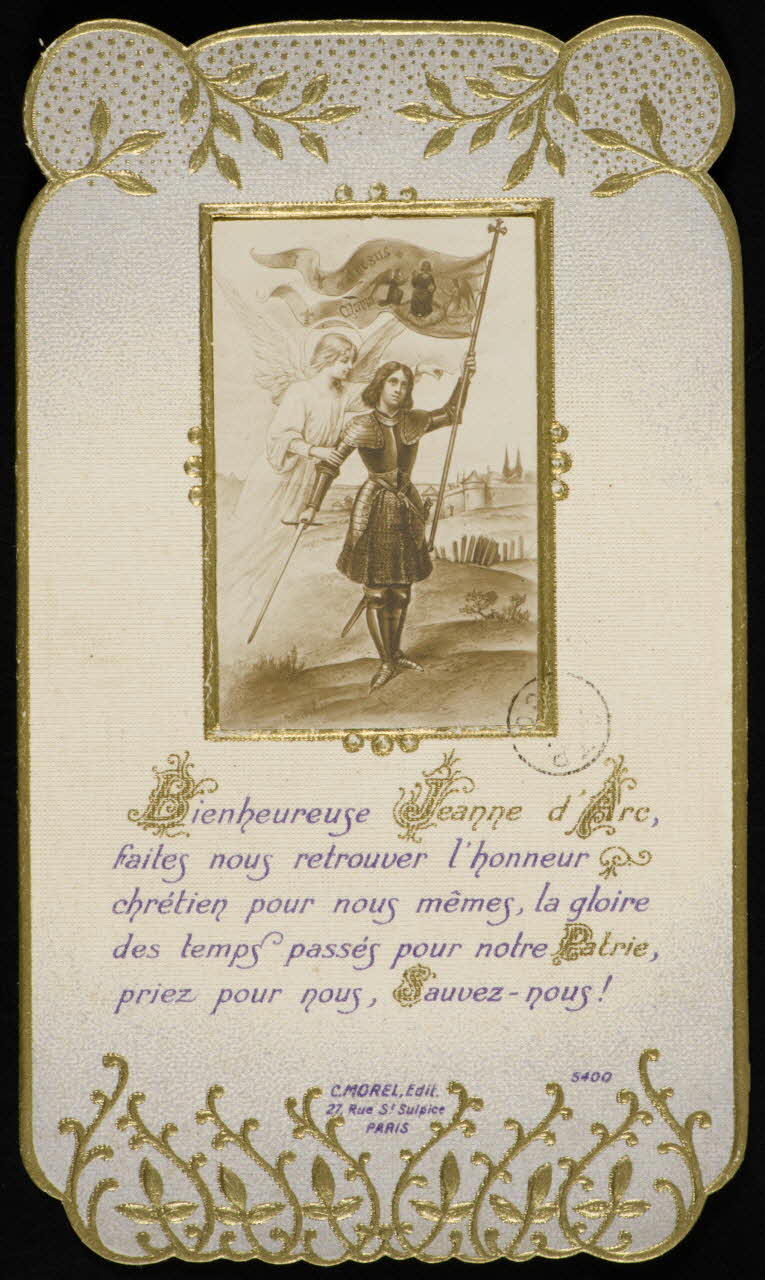 Jhesus
Maria
Bienheureuse Jeanne d'Arc,
faites nous retrouver l'honneur
chrétien pour nous mêmes, la gloire
des temps passés pour notre Patrie,
priez pour nous, Sauvez-nous!
5400
C. MOREL, Edit.
27, Rue St Sulpice
PARIS